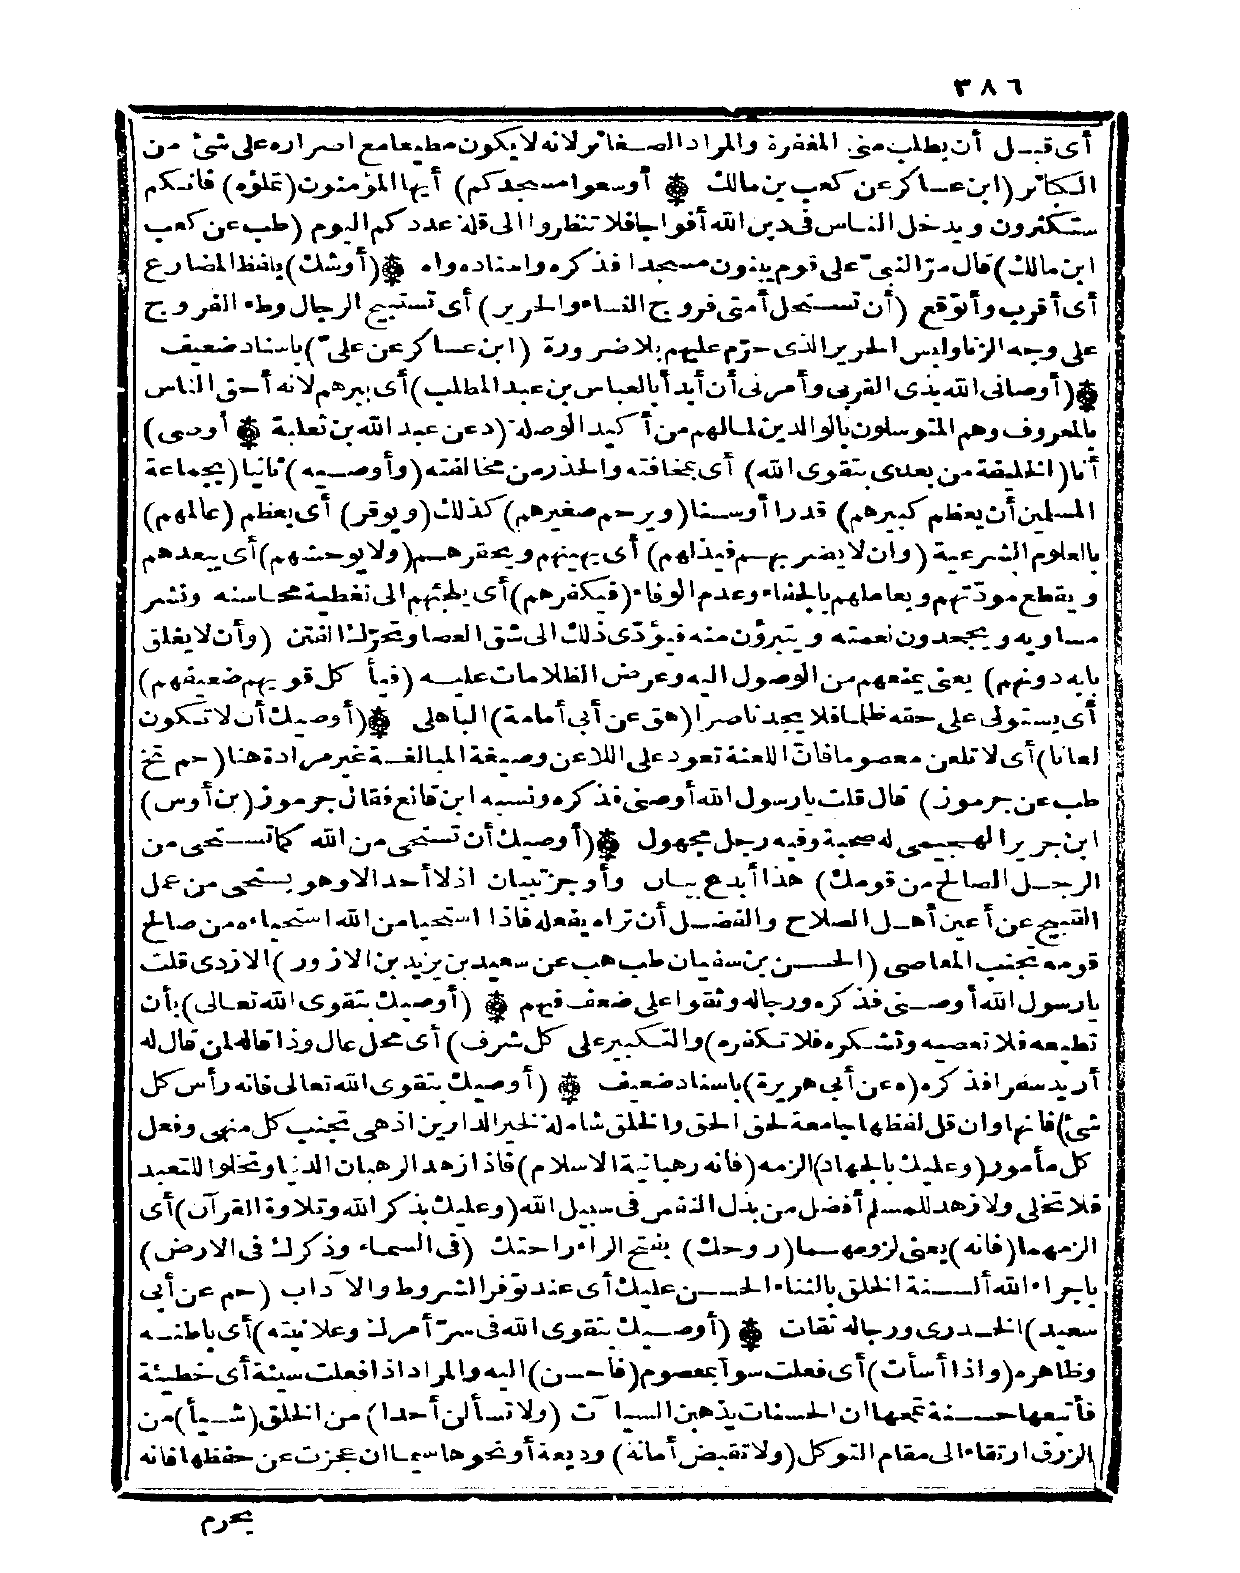 ٣٨٦
أى قبـل أن يطلب منى المغفرة والمراد الصغائر لانه لا يكون مطيعا مع اصراره على شئ من
الكبائر (ابن عساكر عن كعب بن مالك ۞ أوسعوا مسجدكم) أيها المؤمنون (تملؤه) فانكم
ستكثرون ويدخل الناس فى دين الله أفواجا فلا تنظروا الى قلة عددكم اليوم (طب عن كعب
ابن مالك) قال مرّ النبىّ على قوم يبنون مسجدا فذكره واسناده واه ۞ (أوشك) بلفظ المضارع
أى أقرب وأتوقع (أن تستحل أمتى فروج النساء والحرير) أى تستبيح الرجال وطء الفروج
على وجه الزنا ولبس الحرير الذى حرّم عليهم بلا ضرورة (ابن عساكر عن علىّ) باسناد ضعيف
۞ (أوصانى الله بذى القربى وأمرنى أن أبدأ بالعباس بن عبد المطلب) أى ببرهم لانه أحق الناس
بالمعروف وهم المتوسلون بالوالدين لمالهم من أكيد الوصلة (د عن عبد الله بن ثعلبة ۞ أوصى)
أنا (الخليفة من بعدى بتقوى الله) أى بمخافته والحذر من مخالفته (وأوصيه) ثانيا (بجماعة
المسلمين أن يعظم كبيرهم) قدرا أو سنا (ويرحم صغيرهم) كذلك (ويوقر) أى يعظم (عالمهم)
بالعلوم الشرعية (وان لا يضر بهـم فيذلهم) أى يهينهم ويحقرهـم (ولا يوحشهم) أى يبعدهم
ويقطع مودّتهم ويعاملهم بالجفاء وعدم الوفاء (فيكفرهم) أى يلجئهم الى تغطية محاسنه ونشر
مساويه ويجحدون نعمته ويتبرؤن منه فيؤدّى ذلك الى شق العصا وتحرّك الفتن (وأن لا يغلق
بابه دونهم) يعنى يمنعهم من الوصول اليه وعرض الظلامات عليـه (فيأكل قويهم ضعيفهم)
أى يستولى على حقه ظلما فلا يجد ناصرا (هق عن أبى أمامة) الباهلى ۞ (أوصيك أن لا تكون
لعانا) أى لا تلعن معصوما فانّ اللعنة تعود على اللاعن وصيغة المبالغـة غير مرادة هنا (حم تخ
طب عن جرموز) قال قلت يا رسول الله أوصنى فذكره ونسبه ابن قانع فقال جرموز (بن أوس)
ابن جرير الهجيمى له صحبة وفيه رجل مجهول ۞ (أوصيك أن تستحى من الله كما تسـتحى من
الرجـل الصالح من قومك) هذا أبدع بيان وأوجز تبيان اذ لا أحد الا وهو يستحى من عمل
القبيح عن أعين أهـل الصلاح والفضـل أن تراه يفعله فاذا استحيا من الله استحياءه من صالح
قومه تجنب المعاصى (الحسـن بن سفيان طب هب عن سعيد بن يزيد بن الازور) الازدى قلت
يا رسول الله أوصـنى فذكره ورجاله وثقوا على ضعف فيهم ۞ (أوصيك بتقوى الله تعالى) بأن
تطيعه فلا تعصيه وتشكره فلا تكفره (والتكبير على كل شرف) أى محل عال وذا قاله لمن قال له
أريد سفرا فذكره (ه عن أبى هريرة) باسناد ضعيف ۞ (أوصيك بتقوى الله تعالى فانه رأس كل
شئ) فانها وان قل لفظها جامعة لحق الحق والخلق شاملة لخير الدارين اذ هى تجنب كل منهى وفعل
كل مأمور (وعليك بالجهاد) الزمه (فانه رهبانية الاسلام) فاذا زهد الرهبان الدنيا وتخلوا للتعبد
فلا تخلى ولا زهد للمسلم أفضل من بذل النفس فى سبيل الله (وعليك بذكر الله وتلاوة القرآن) أى
الزمهما (فانه) يعنى لزومهـما (روحك) بفتح الراء راحتك (فى السماء وذكرك فى الارض)
باجراء الله ألسـنة الخلق بالثناء الحسـن عليك أى عند توفر الشروط والآداب (حم عن أبى
سعيد) الخـدرى ورجاله ثقات ۞ (أوصـيك بتقوى الله فى سرّ أمرك وعلانيته) أى باطنـه
وظاهره (واذا أسأت) أى فعلت سوأ بمعصوم (فأحسن) اليه والمراد اذا فعلت سيئة أى خطيئة
فأتبعها حسـنة تمحها ان الحسنات يذهبن السيآت (ولا تسألن أحدا) من الخلق (شـيأ) من
الرزق ارتقاء الى مقام التوكل (ولا تقبض أمانة) وديعة أو نحوها سيما ان عجزت عن حفظها فانه
يحرم